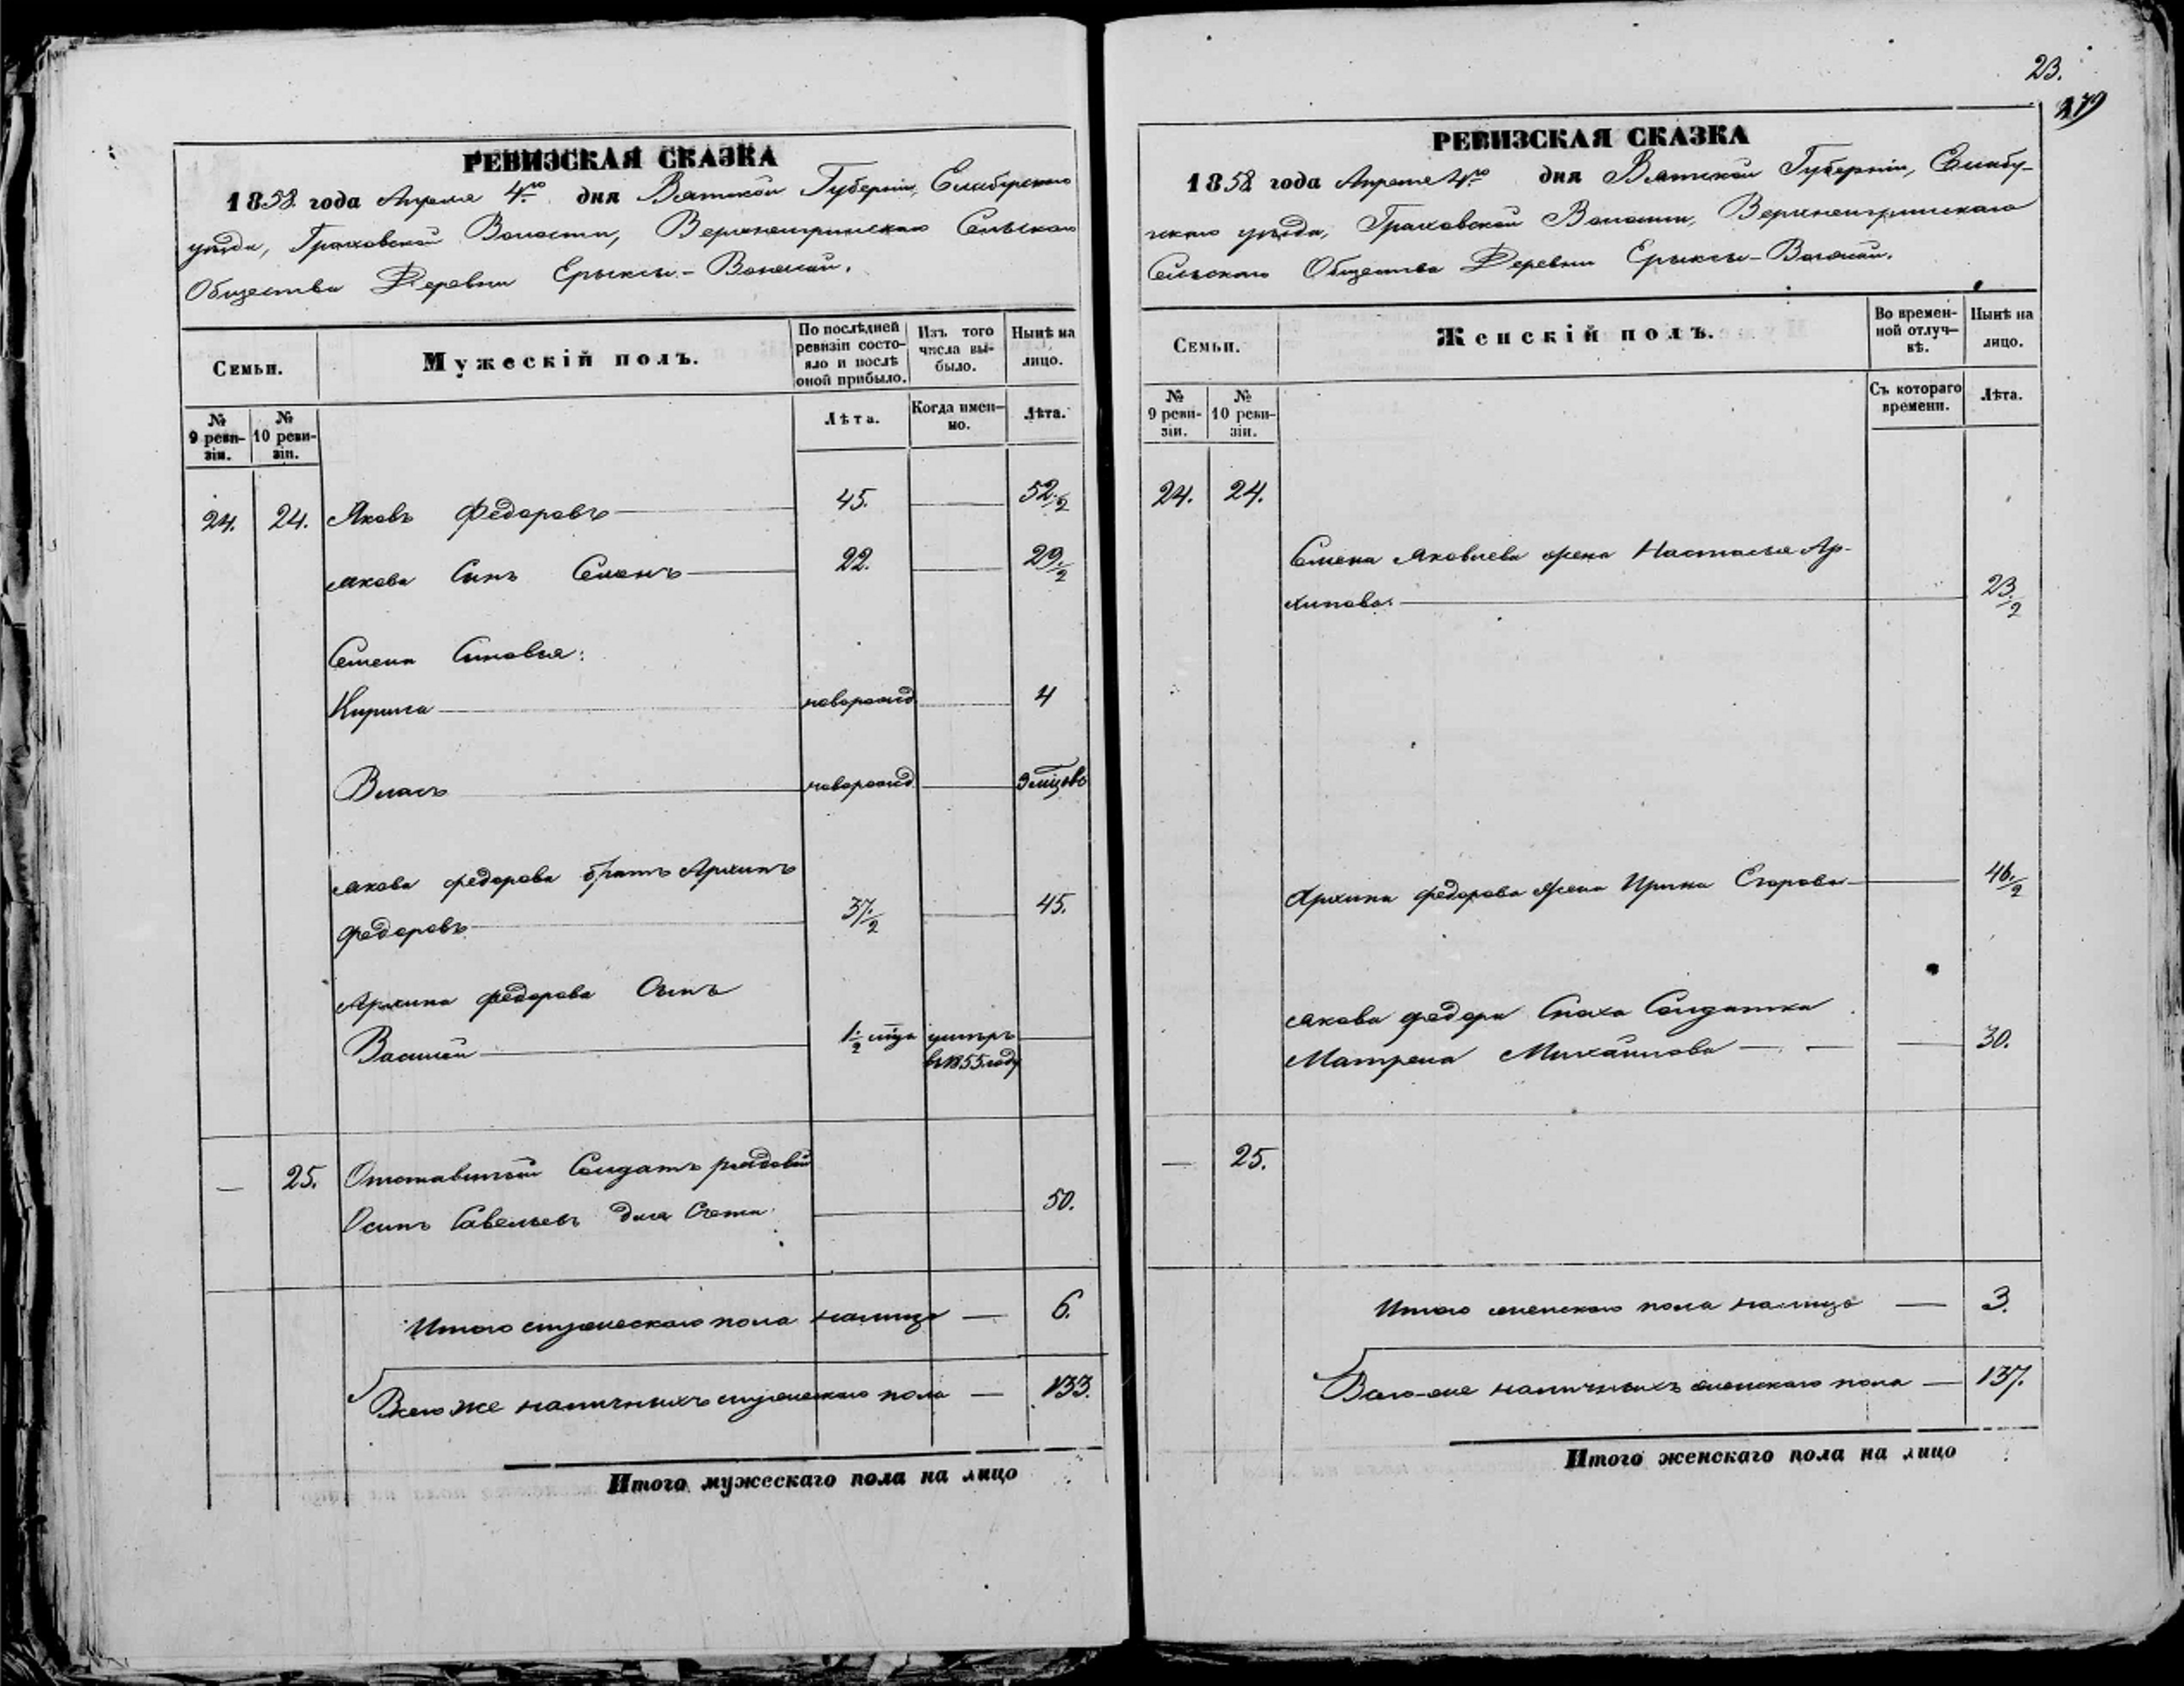 РЕВИЗСКАЯ СКАЗКА
1858 года Апреля 4го дня Вятской Губернiи, Елабугскаго
уѣзда, Граховской Волости, Верхнеигринскаго Сельскаго
Общества Деревни Ерыксы-
Семьи.
Мужескiй полъ.
По послѣдней ревизiи состо-
яло и послѣ
оной прибыло.
Изъ того
числа вы-
было.
Нынѣ на
лицо.
№
9 реви-
зiи.
№
10 реви-
зiи.
Лѣта.
Когда имен-
но.
Лѣта.
24. 24. Яковъ Федоровъ 45. 52 1/2
Якова Сынъ Семенъ 22. 29 1/2
Семена Сыновья:
Кирила новорожд 4
Власъ новорожд 3 мцовъ
Якова Федорова братъ Архипъ
Федоровъ 37 1/2 45.
Архипа Федорова Сынъ
Василiй 1/2 года умеръ
в 1855 году
— 25. Отставной Солдатъ рядовой
Осипъ Савельевъ для Счета 50.
Итого мужескаго пола налицо — 6.
Всего же наличныхъ мужескаго пола — 133.
Итого мужескаго пола на лицо
23.
279
РЕВИЗСКАЯ СКАЗКА
1858 года Апреля 4го дня Вятской Губернiи, Елабу-
гскаго уѣзда, Граховской Волости, Верхнеигринскаго
Сельскаго Общества Деревни Ерыксы-
Семьи.
Женскiй полъ.
Во времен-
ной отлуч-
кѣ.
Нынѣ на
лицо.
№
9 реви-
зiи.
№
10 реви-
зiи.
Съ котораго
времени.
Лѣта.
24. 24.
Семена Яковлева жена Настасья Ар-
хипова 23 1/2
Архипа Федорова Жена Ирина Егорова 46 1/2
Якова Федора Сноха Солдатка
Матрена Михайлова 30.
— 25.
Итого женскаго пола налицо — 3.
Всего-же наличныхъ женскаго пола — 137.
Итого женскаго пола на лицо